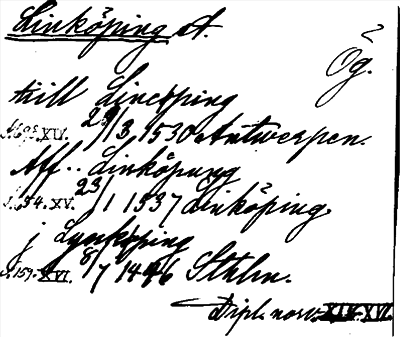 Linköping st.
Ög.
till Lincöping
XIV. 29/3 1530 Antwerpen.
Aff .. Linköpung
s. 54. XV. 23/1 1537 Linköping.
j Lynköping
s. 159. XVI. 8/7 1446 Sthlm.
Dipl. norv. XIV-XVI.